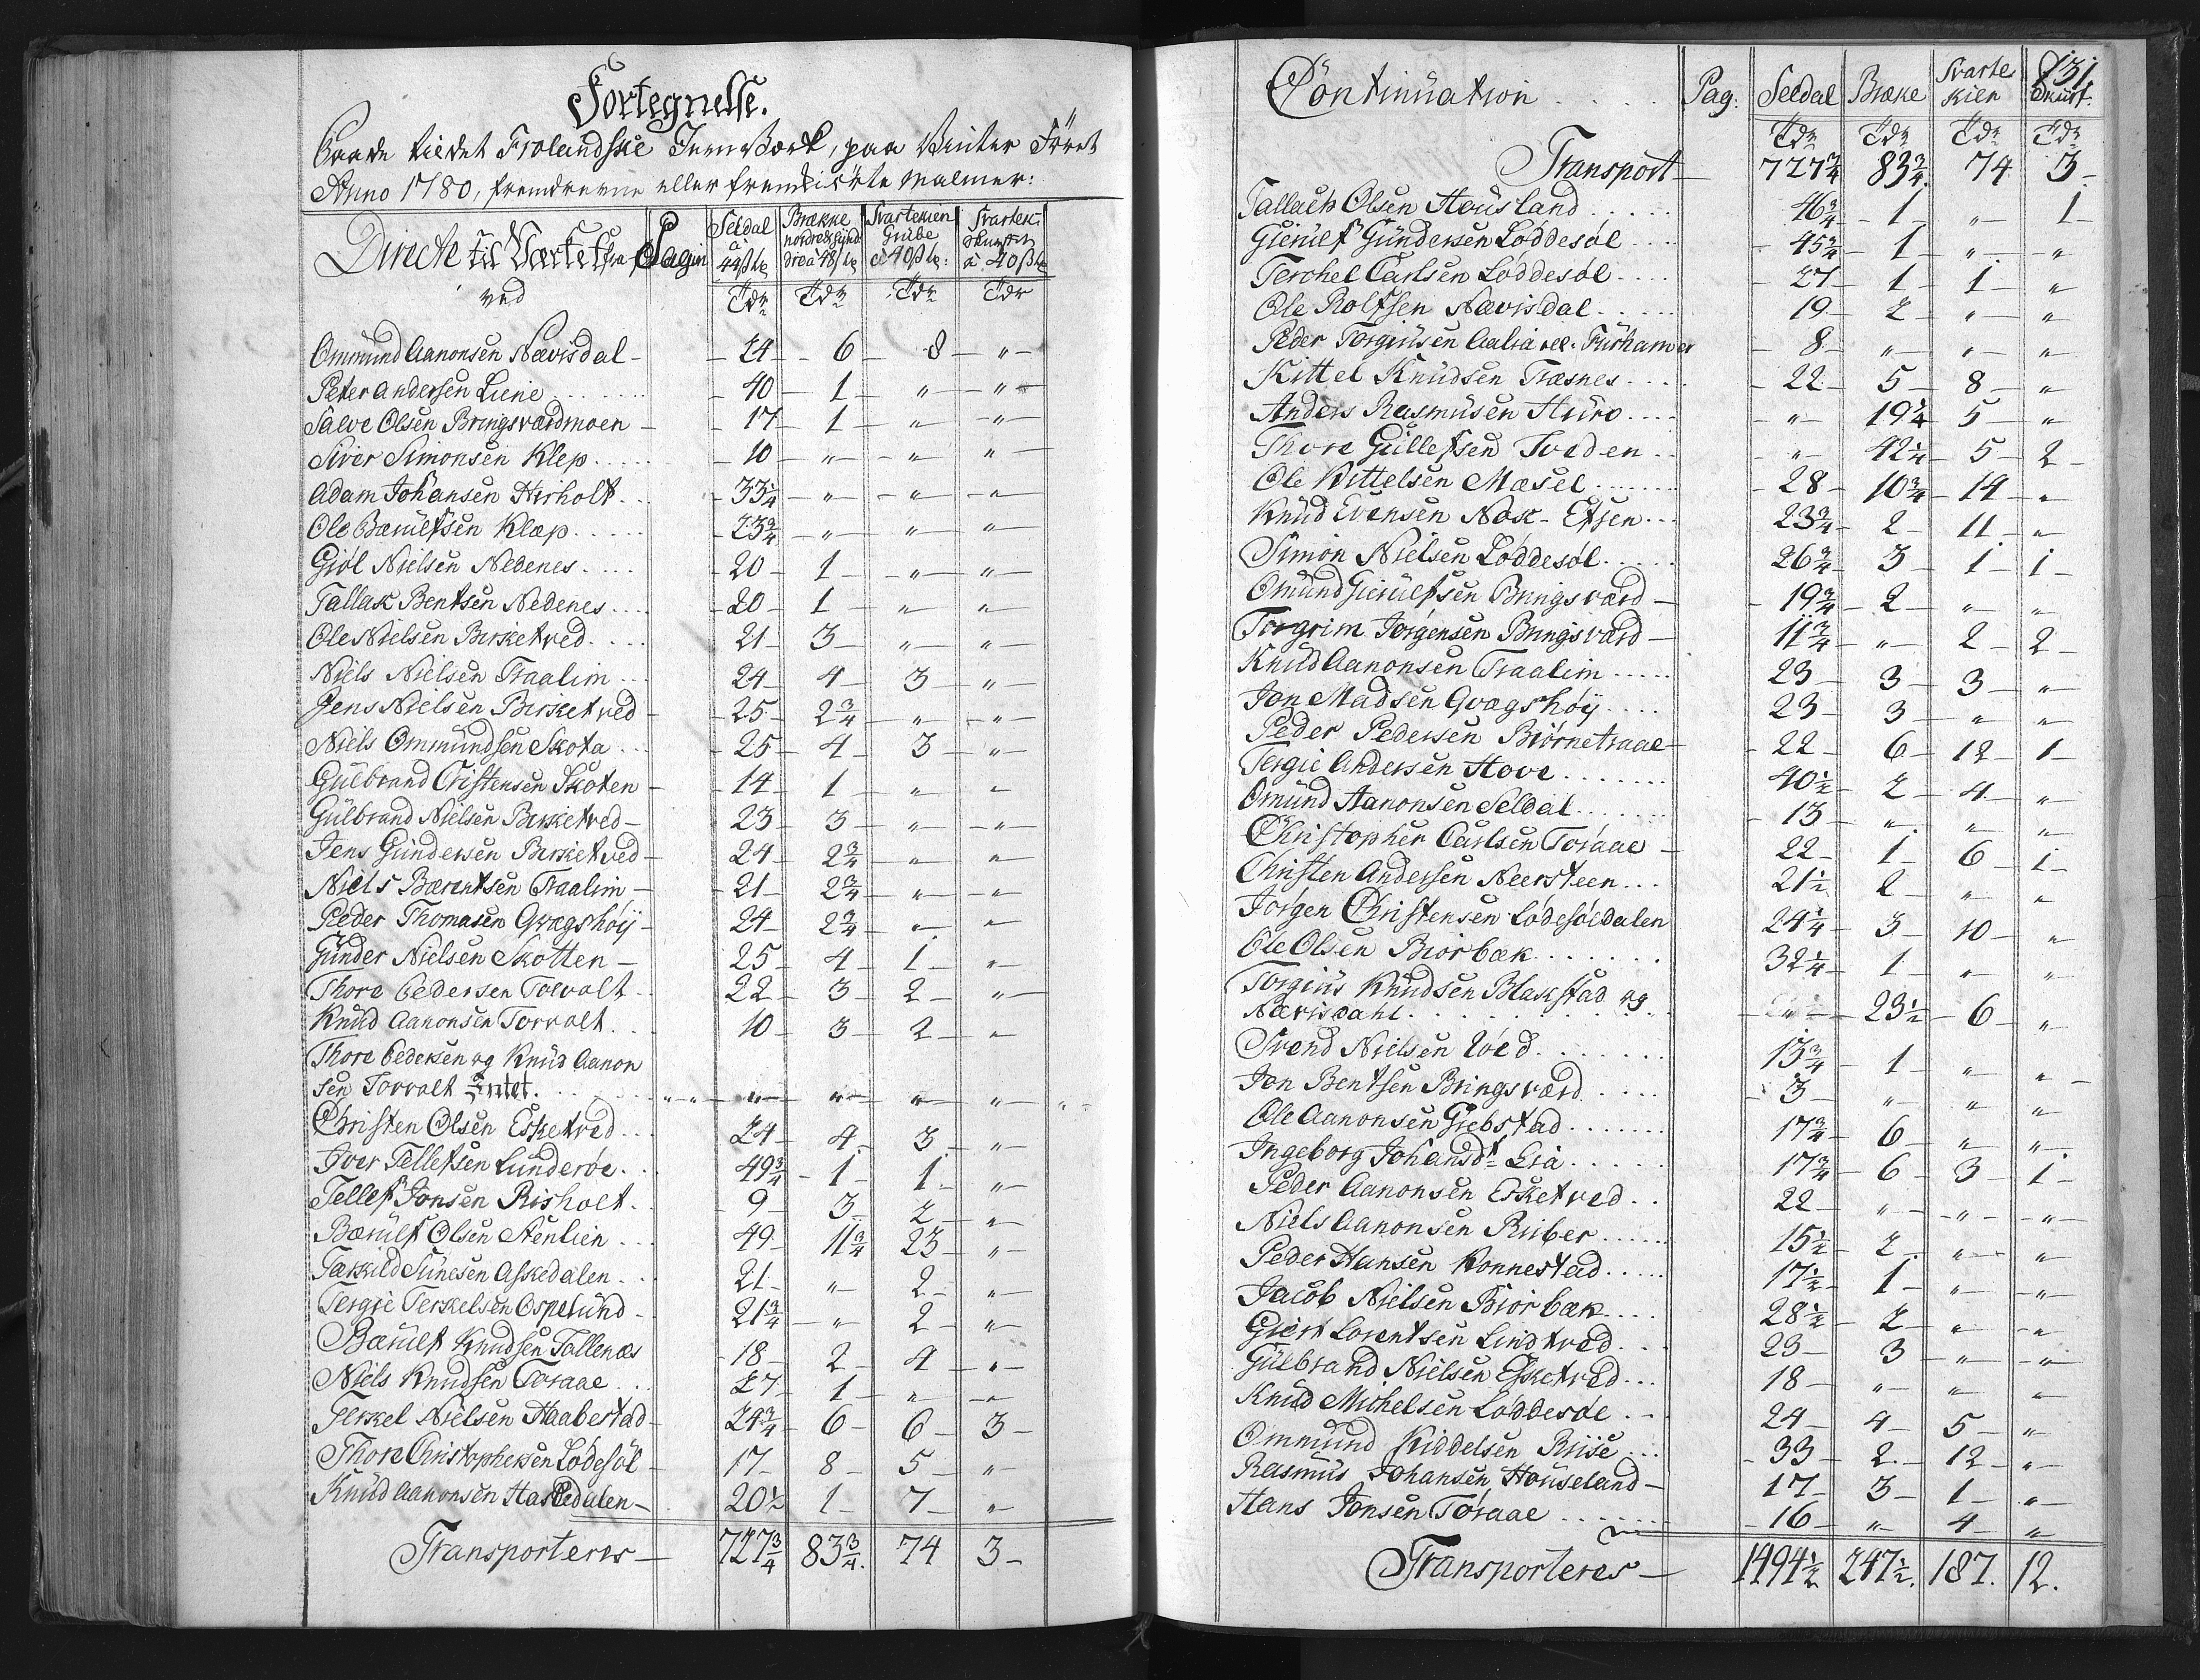 Fortegnelse.
Froelandske Jernverk, paa Vinter Føret
Anno 1780, fremdrevne eller fremkiørte Malmer:
Directe til Værket fra Pagin Seldal Brække Svartekien Svartek:
nordre & Synd Grube skurf
ved à 44 ß dre à 48 ß à 40 ß à 40 ß
Tdr Tdr Tdr Tdr
Ommund Aanonsen Nævisdal - 24 - 6 - 8 - " -
Peter Andersen Liene - 40 - 1 - " - " -
Salve Olsen Bringsværdmoen - 17 - 1 - " - " -
Siver Simonsen Klep - 10 - " - " - " -
Adam Johansen Hirholt - 33 1/4 - " - " - " -
Ole Bærulfsen Klæp - 23 3/4 - " - " - " -
Giøl Nielsen Nedenes - 20 - 1 - " - " -
Tallak Bentsen Nedenes - 20 - 1 - " - " -
Ole Nielsen Birketved - 21 - 3 - " - " -
Niels Nielsen Traalim - 24 - 4 - 3 - " -
Jens Nielsen Birketved - 25 - 2 3/4 - " - " -
Niels Ommundsen Skota - 25 - 4 - 3 - " -
Gulbrand Cristensen Skoten - 14 - 1 - " - " -
Gulbrand Nielsen Birketved - 23 - 3 - " - " -
Jens Gundersen Birketved - 24 - 2 3/4 - " - " -
Niels Bærentsen Traalim - 21 - 2 3/4 - " - " -
Peder Thomasen Qvægshøÿ - 24 - 2 3/4 - " - " -
Gunder Nielsen Skotten - 25 - 4 - 1 - " -
Thore Pedersen Torvolt - 22 - 3 - 2 - " -
Knud Aanonsen Torvolt - 10 - 3 - 2 - " -
Thore Pedersen og Knud Aanon
sen Torvolt Intet. " - " - " - " - " -
Christen Olsen Esketved - 24 - 4 - 3 - " -
Iver Tellefsen Lunderøe - 49 3/4 - 1 - 1 - " -
Tellef Jonsen Risholt - 9 - 3 - 2 - " -
Bærulf Olsen Stenlien - 49 - 11 3/4 - 23 - " -
Tarkild Sunesen Askedalen - 21 - " - 2 - " -
Tergie Terkelsen Ospelund - 21 3/4 - " - 2 - " -
Bærulf Knudsen Tallenæs - 18 - 2 - 4 - " -
Niels Knudsen Toraae - 27 - 1 - " - " -
Terkel Nielsen Haabestad - 24 3/4 - 6 - 6 - 3 -
Thore Christophersen Lødesøl - 17 - 8 - 5 - " -
Knud Aanonsen Haskedalen - 20 1/2 - 1 - 7 - " -
Transporteres - 727 3/4 83 3/4. 74 3 -
131
Continuation Pag: Seldal Bræke Svarte kien Skurf.
Tdr Tdr Tdr Tdr
Transport - 727 3/4 83 3/4. 74 3 -
Tallach Olsen Housland - 46 3/4 - 1 - " - 1 -
Gierulf Gundersen Løddesøl - 45 3/4 - 1 - " - " -
Terchel Carlsen Løddesøl - 27 - 1 - 1 - "
Ole Rolfsen Nævisdal - 19 - 2 - " - "
Peder Torgiusen Aalia vel. Furhamer - 8 - " - " - "
Kittel Knudsen Træsnes - 22 - 5 - 8 - "
Anders Rasmusen Huro - " - 19 1/4 - 5 - "
Thore Gullefsen Tveden - " - 42 1/4 - 5 - 2 -
Ole Kittelsen Mæsel - 28 - 10 3/4 - 14 - "
Knud Evensen Næs- - 23 3/4 - 2 - 11 - "
Simon Nielsen Løddesøl - 26 3/4 - 3 - 1 - 1 -
Omund Gierulfsen Bringsværd - 19 3/4 - 2 - " - "
Torgrim Jørgensen Bringsværd - 11 3/4 - " - 2 - 2 -
Knud Aanonsen Traalim - 23 - 3 - 3 - "
Jon Madsen Qvægshøÿ - 23 - 3 - " - "
Peder Pedersen Biørnetraae - 22 - 6 - 12 - 1 -
Tergie Andersen Hove - 40 1/2 - 2 - 4 - "
Omund Aanonsen Seldal - 13 - " - " - "
Christopher Carlsen Toraae - 22 - 1 - 6 - 1 -
Christen Andersen Neersteen - 21 1/2 - 2 - " - "
Jørgen Christensen Lødesøldalen - 24 1/4 - 3 - 10 - "
Ole Olsen Biorbæk - 32 1/4 - 1 - " - "
Torgius Knudsen Blakstad og
Nævisdahl - " - 23 1/2 - 6 - "
Svend Nielsen Løed - 13 3/4 - 1 - " - " -
Jon Bentsen Bringsværd - 3 - " - " - "
Ole Aanonsen Giebstad - 17 3/4 - 6 - " - "
Ingeborg Johansdt Lia - 17 3/4 - 6 - 3 - 1 -
Peder Aanonsen Esketved - 22 - " - " - " -
Niels Aanonsen Riiber - 15 1/2 - 2 - " - "
Peder Hansen Konnestad - 17 1/2 - 1 - " - "
Jacob Nielsen Biorbæk - 28 1/2 - 2 - " - "
Giert Lorentsen Lindtved - 23 - 3 - " - "
Gulbrand Nielsen Esketved - 18 - " - " - "
Knud Michelsen Løddesøl - 24 - 4 - 5 - "
Ommund Kiddelsen Riise - 33 - 2 - 12 - "
Rasmus Johansen Houseland - 17 - 3 - 1 - "
Hans Jonsen Toraae - 16 - " - 4 - "
Transporteres - 1494 1/2 247 1/2. 187. 12.